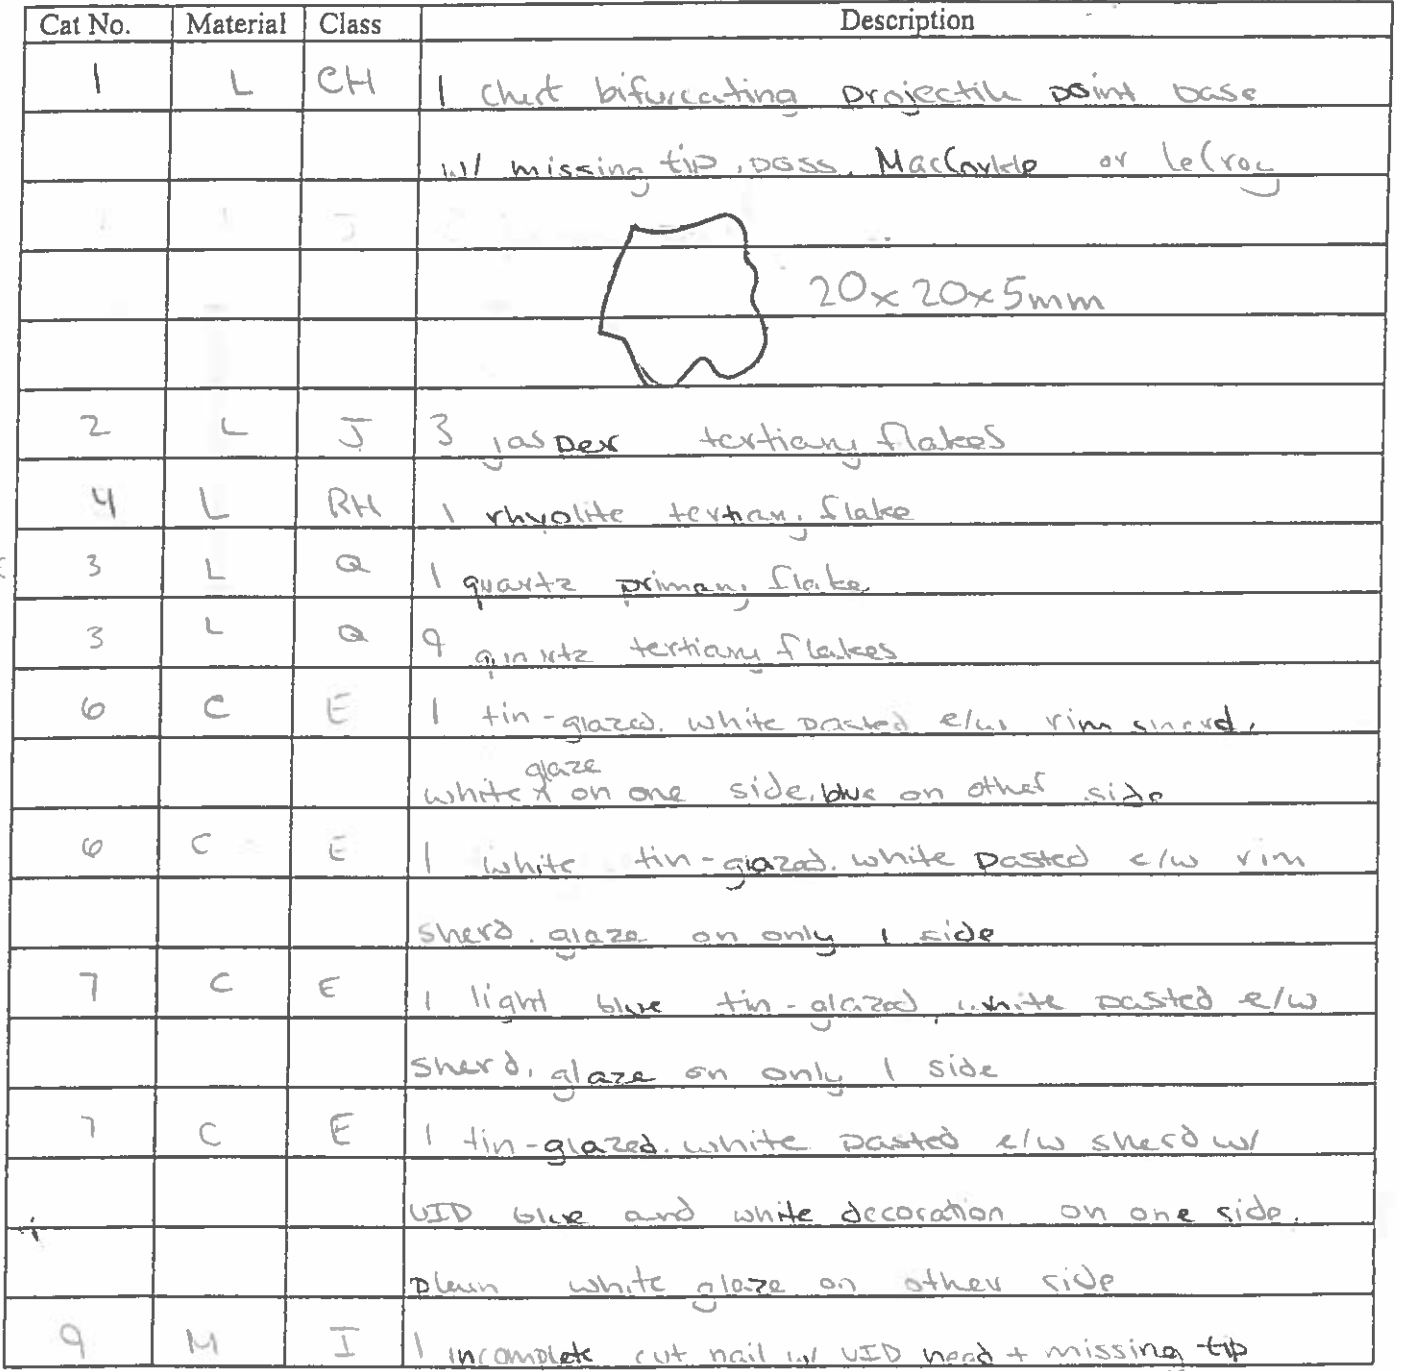 Cat No. Material Class Description
1 L CH 1 chert bifurcating projectile point base
w/ missing tip, poss. MacCorkle or LeCroy
20x20x5mm
2 L J 3 jasper tertiary flakes
4 L RH 1 rhyolite tertiary flake
3 L Q 1 quartz primary flake
3 L Q 9 quartz tertiary flakes
6 C E 1 tin-glazed, white pasted e/w rim sherd,
glaze
white ^ on one side, blue on other side
6 C E 1 white tin-glazed, white pasted e/w rim
sherd, glaze on only 1 side
7 C E 1 light blue tin-glazed, white pasted e/w
sherd, glaze on only 1 side
7 C E 1 tin-glazed, white pasted e/w sherd w/
UID blue and white decoration on one side,
plain white glaze on other side
9 M I 1 incomplete cut nail w/ UID head + missing tip